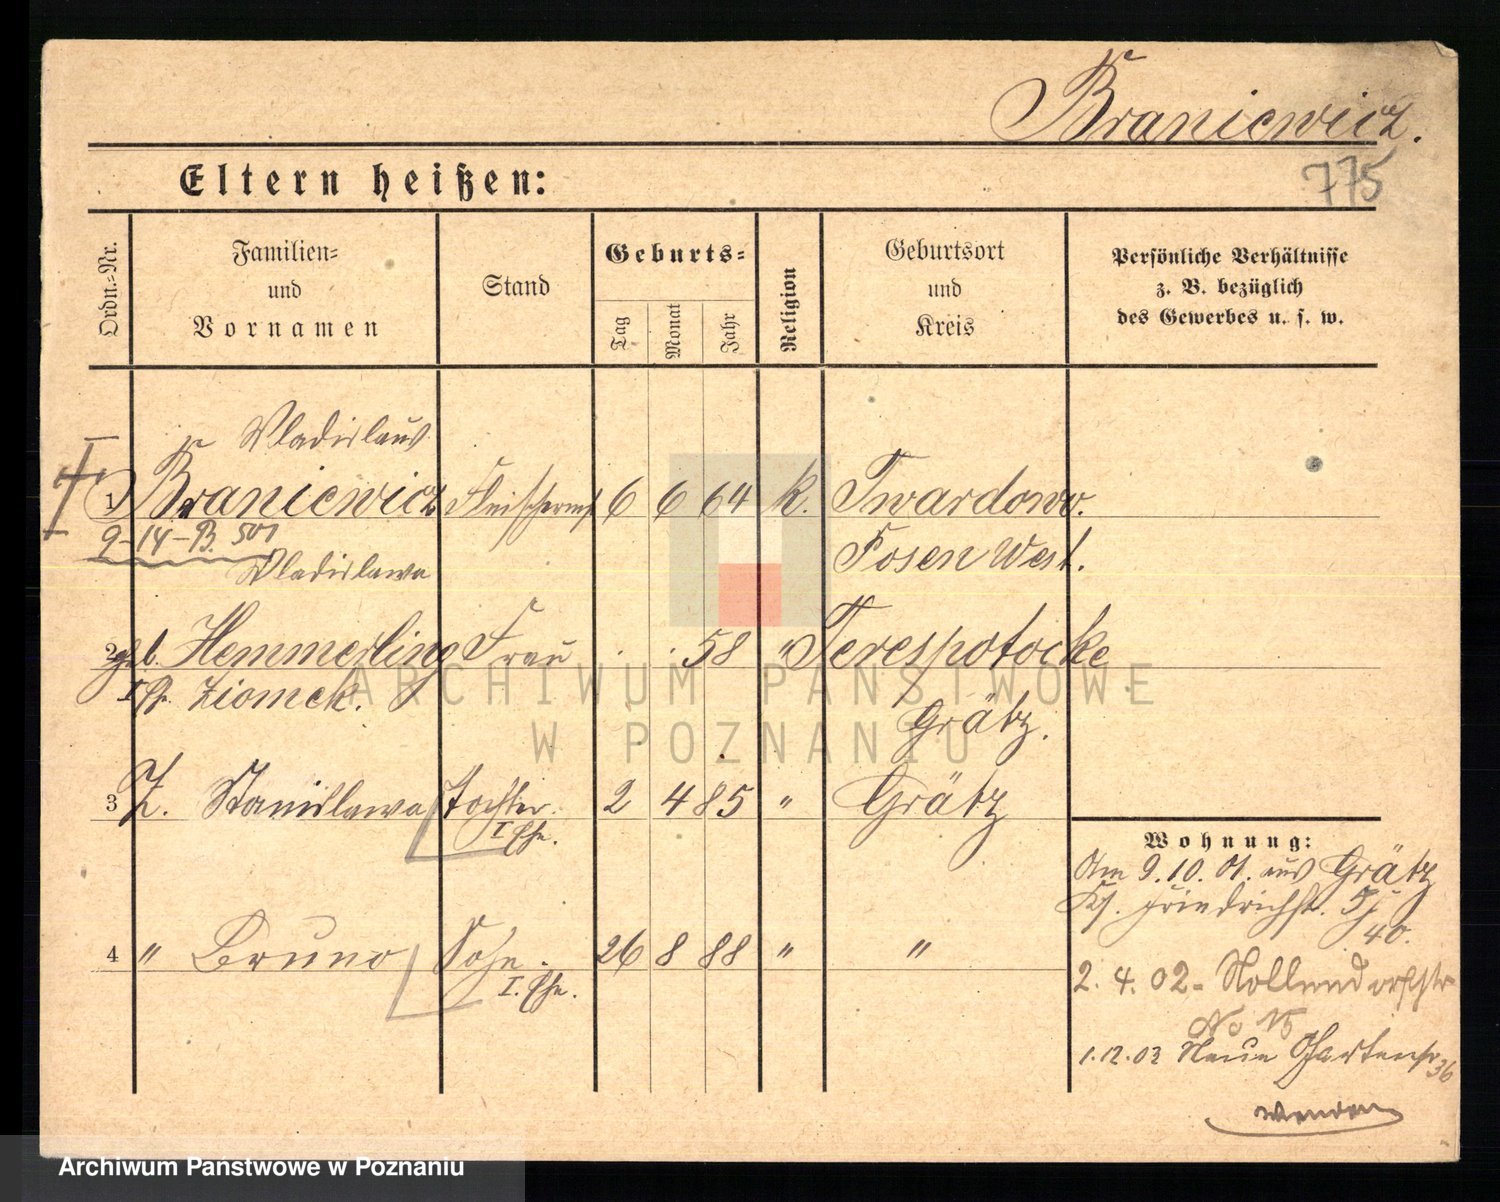 Braniewicz.
Eltern heißen:
775
Ordn.-Nr.
Familien-
und
Vornamen
Stand
Geburts-
Tag
Monat
Jahr
Religion
Geburtsort
und
Kreis
Persönliche Verhältnisse
z. B. bezüglich
des Gewerbes u. s. w.
Wladislaus
1 Braniewicz Fleischermst 6 6 64 k. Twardowo.
9-14-B. 501
Posen West.
Wladislawa
2 geb. Hemmerling Frau . . 58 " Terespotocke
I Eh. Ziomek.
Grätz.
3 Z. Stanislawa Tochter 2 4 85 " Grätz
I Ehe.
4 " Bruno Sohn. 26 8 88 " "
I. Ehe.
Wohnung:
Am 9.10.01. aus Grätz
Ks. Friedrichst. 5j
40.
2. 4. 02 - Nollendorfstr
No 15
1.12.03 Neue Gartenstr 36
wenden
ARCHIWUM PAŃSTWOWE
W POZNANIU
Archiwum Państwowe w Poznaniu